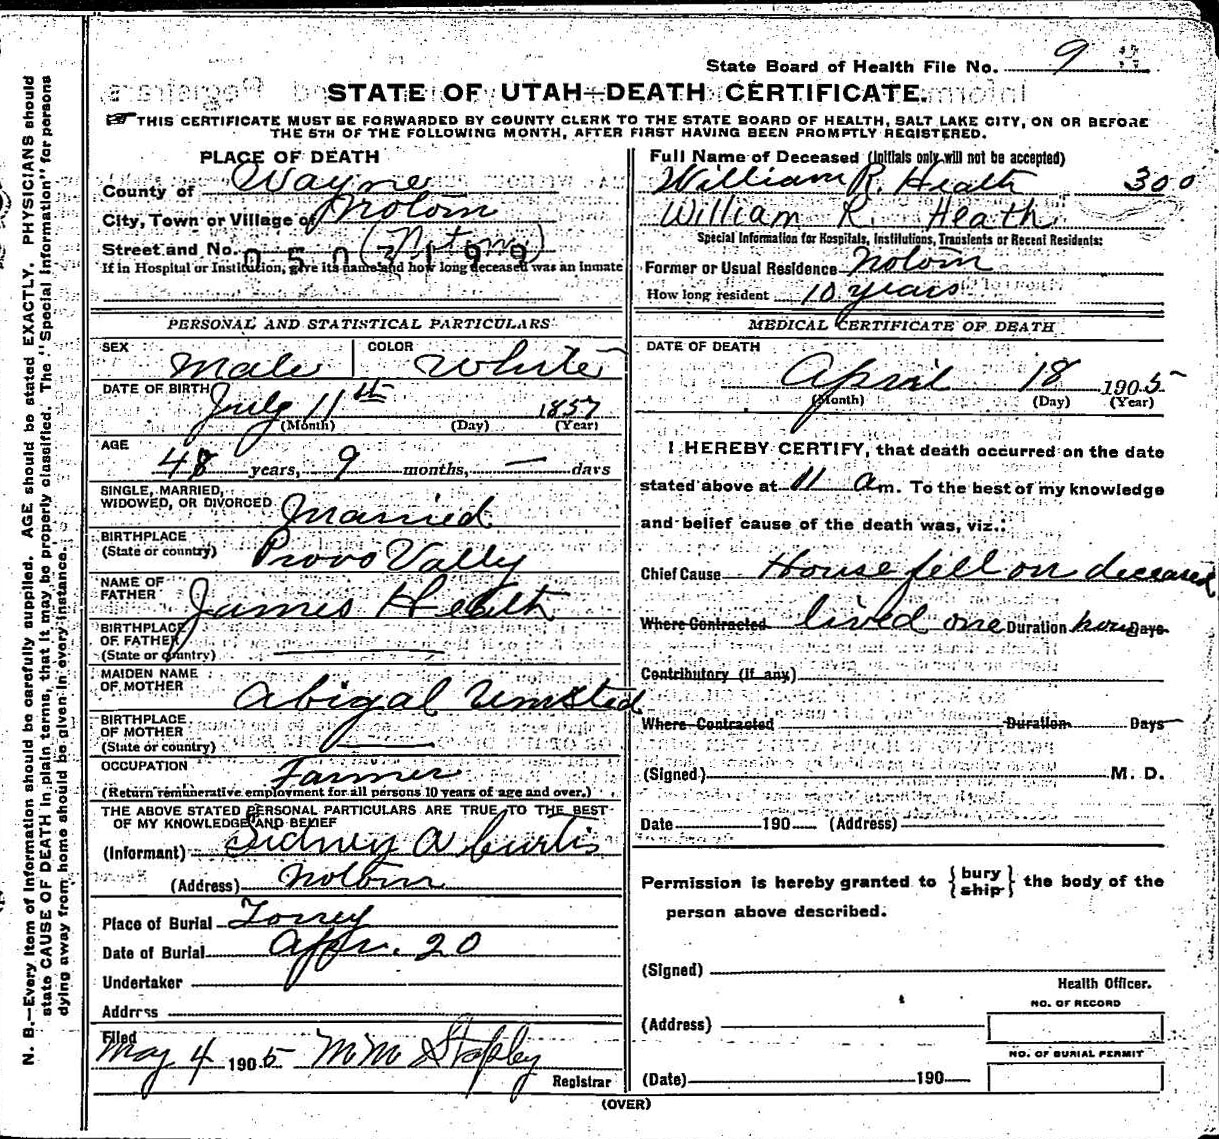 State Board of Health File No. 9
STATE OF UTAH—DEATH CERTIFICATE.
THIS CERTIFICATE MUST BE FORWARDED BY COUNTY CLERK TO THE STATE BOARD OF HEALTH, SALT LAKE CITY, ON OR BEFORE
THE 5TH OF THE FOLLOWING MONTH, AFTER FIRST HAVING BEEN PROMPTLY REGISTERED.
PLACE OF DEATH
County of Wayne
City, Town or Village of Notom
Street and No. (Notom)
0503199
If in Hospital or Institution, give its name and how long deceased was an inmate
PERSONAL AND STATISTICAL PARTICULARS
SEX Male COLOR White
DATE OF BIRTH July 11th 1857
(Month) (Day) (Year)
AGE 48 years, 9 months, — days
SINGLE, MARRIED,
WIDOWED, OR DIVORCED Married
BIRTHPLACE
(State or country) Provo Vally
NAME OF
FATHER James Heath
BIRTHPLACE
OF FATHER
(State or country) —
MAIDEN NAME
OF MOTHER Abigal Umsted
BIRTHPLACE
OF MOTHER
(State or country) —
OCCUPATION Farmer
(Return remunerative employment for all persons 10 years of age and over.)
THE ABOVE STATED PERSONAL PARTICULARS ARE TRUE TO THE BEST
OF MY KNOWLEDGE AND BELIEF
(Informant) Sidney A Curtis
(Address) Notom
Place of Burial Torrey
Date of Burial Apr. 20
Undertaker
Address
Filed
May 4 1905 M M Stapley
Registrar
Full Name of Deceased (Initials only will not be accepted)
William R. Heath 300
William R. Heath
Special Information for Hospitals, Institutions, Transients or Recent Residents:
Former or Usual Residence Notom
How long resident 10 years
MEDICAL CERTIFICATE OF DEATH
DATE OF DEATH
April 18 1905
(Month) (Day) (Year)
I HEREBY CERTIFY, that death occurred on the date
stated above at 11 a m. To the best of my knowledge
and belief cause of the death was, viz.:
Chief Cause House fell on deceased
Where Contracted lived one Duration hour Days
Contributory (if any)
Where Contracted Duration Days
(Signed) M. D.
Date 190 (Address)
Permission is hereby granted to {bury
ship} the body of the
person above described.
(Signed)
Health Officer.
NO. OF RECORD
(Address)
NO. OF BURIAL PERMIT
(Date) 190
(OVER)
N. B.—Every item of information should be carefully supplied. AGE should be stated EXACTLY. PHYSICIANS should
state CAUSE OF DEATH in plain terms, that it may be properly classified. The "Special Information" for persons
dying away from home should be given in every instance.